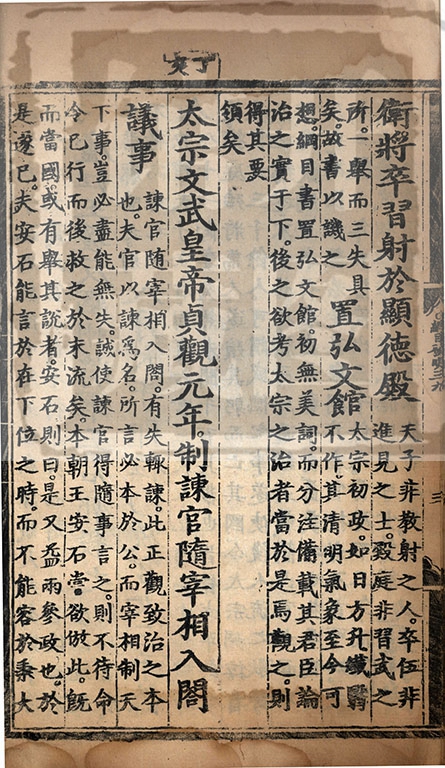 衛將卒習射於顯德殿
天子非教射之人。卒伍非
進見之士。殿庭非習武之
所。一舉而三失具
矣。故書以譏之
置弘文館
太宗初政。如日方升纖翳
不作。其清明氣象至今可
想。綱目書置弘文館。初無美詞。而分注備載其君臣論
治之實于下。後之欲考太宗之治者當於是焉觀之。則
得其要
領矣
太宗文武皇帝貞觀元年。制諫官隨宰相入閤
議事
諫官随宰相入閤。有失輒諫。此正觀致治之本
也。夫官以諫爲名。所言必本於公。而宰相制天
下事。豈必盡能無失。誠使諫官得隨事言之。則不待命
令已行而後救之於末流矣。本朝王安石嘗欲倣此。旣
而當國。或有舉其說者。安石則曰。是又益兩參政也。於
是遂已。夫安石能言於在下位之時。而不能容於秉大
三